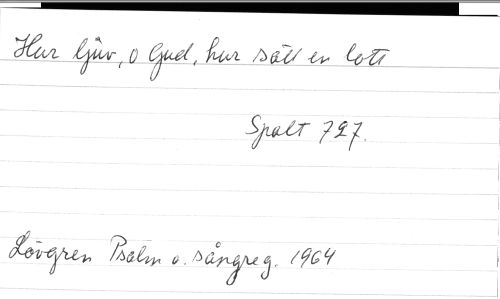 Hur ljuv, o Gud, hur säll en lott
Spalt 727.
Lövgren Psalm o. sångreg. 1964